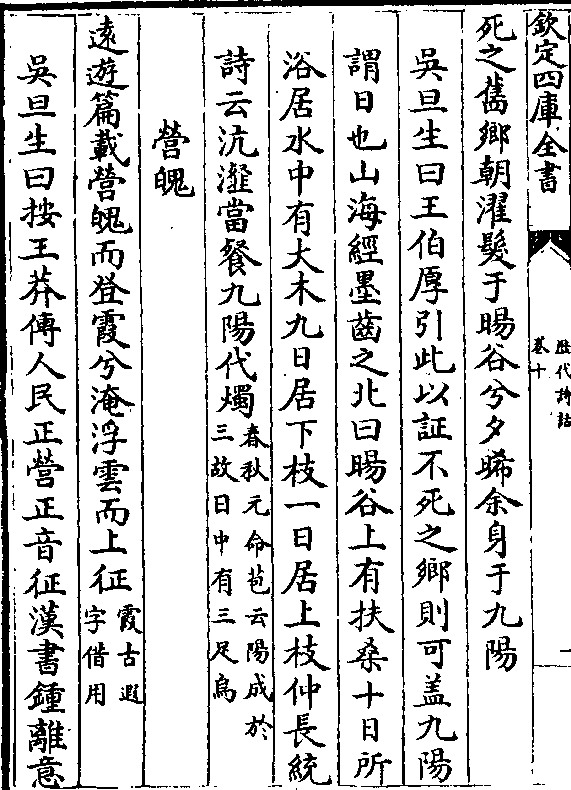 欽定四庫全書
歷代詩話
卷十
一
死之舊鄉朝濯髮于暘谷兮夕晞余身于九陽
吳旦生曰王伯厚引此以証不死之鄉則可盖九陽
謂日也山海經墨齒之北曰暘谷上有扶桑十日所
浴居水中有大木九日居下枝一日居上枝仲長統
詩云沆瀣當餐九陽代燭春秋元命苞云陽成於
三故日中有三足烏
營魄
遠遊篇載營魄而登霞兮淹浮雲而上征霞古遐
字借用
吳旦生曰按王莽傳人民正營正音征漢書鍾離意